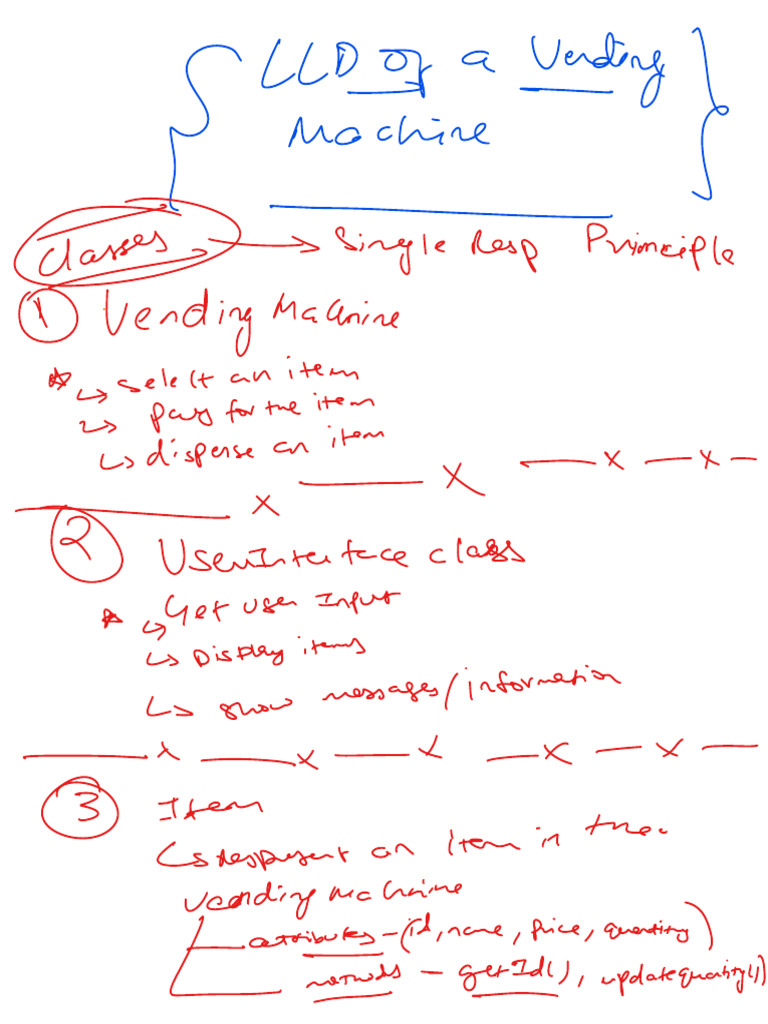 LLD Of a Vending
Machine
Classes → Single Resp Principle
1 Vending Machine
↳ select an item
↳ pay for the item
↳ dispense an item
2 UserInterface class
↳ Get user Input
↳ Display items
↳ show messages/information
3 Item
↳ Represent an Item in the
Vending Machine
attributes - (id, name, price, quantity)
methods - getId(), updatequantity()